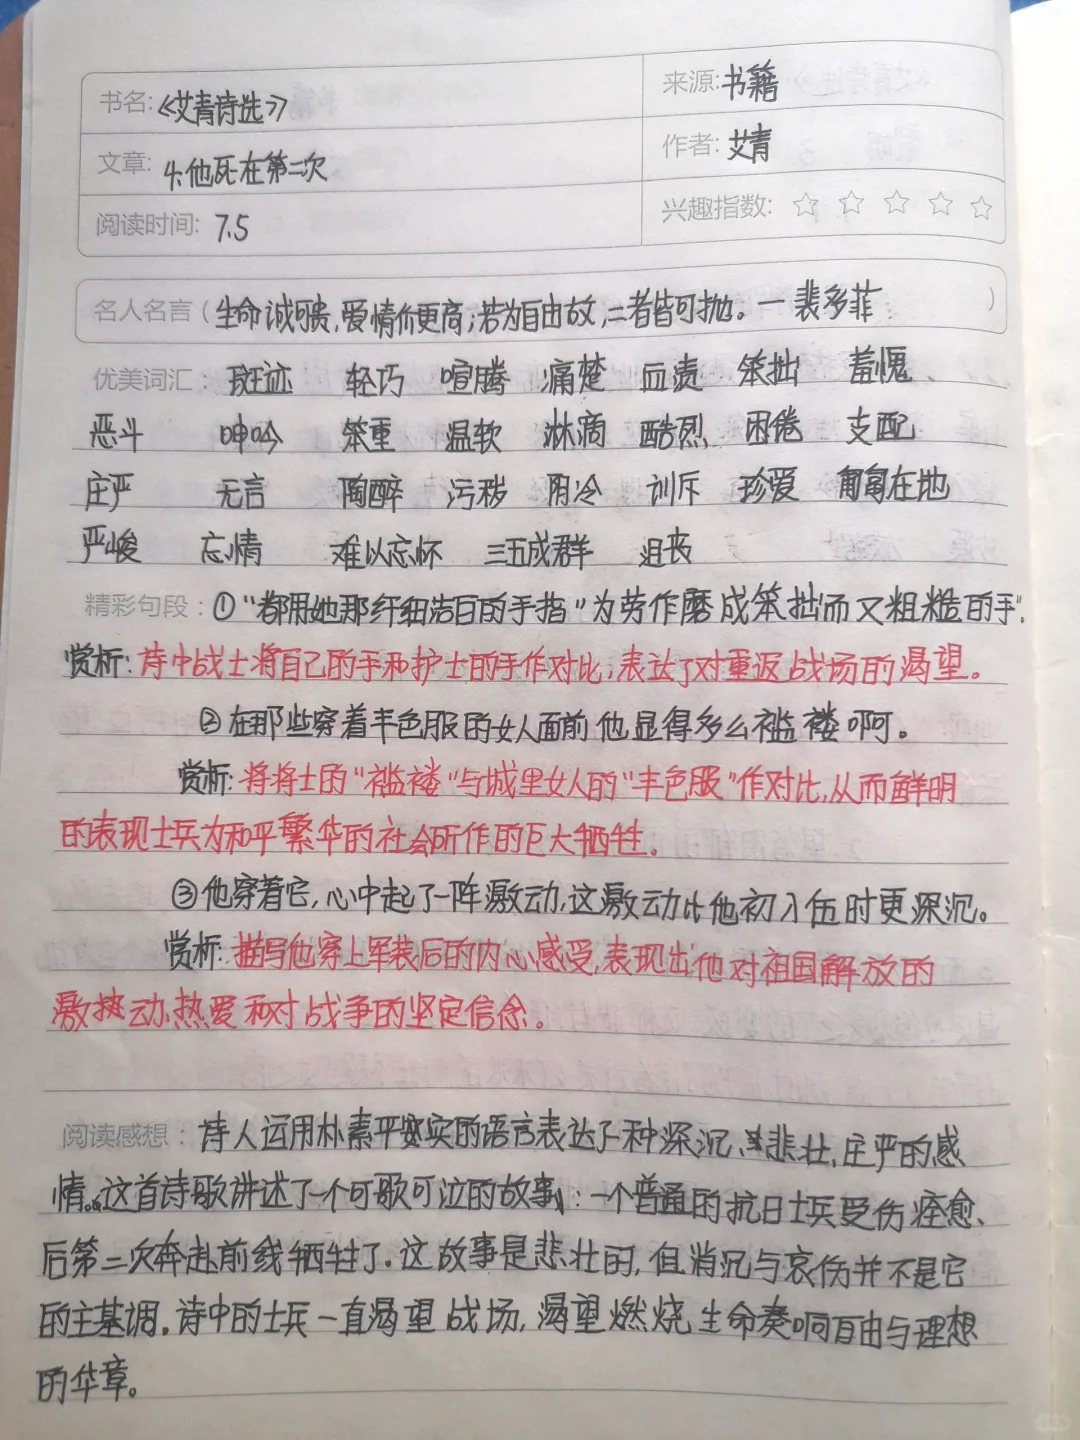 书名:《艾青诗选》
来源:书籍
文章:4.他死在第二次
作者:艾青
阅读时间:7.5
兴趣指数:☆☆☆☆☆
名人名言(生命诚可贵,爱情价更高;若为自由故,二者皆可抛。—裴多菲)
优美词汇:斑迹 轻巧 喧腾 痛楚 血渍 笨拙 羞愧
恶斗 呻吟 笨重 温软 淋滴 酷烈 困倦 支配
庄严 无言 陶醉 污秽 阴冷 训斥 珍爱 匍匐在地
严峻 忘情 难以忘怀 三五成群 沮丧
精彩句段:①“都用她那纤细洁白的手指”为劳作磨成笨拙而又粗糙的手".
赏析:诗中战士将自己的手和护士的手作对比,表达了对重返战场的渴望。
②在那些穿着丰色服的女人面前他显得多么褴褛啊。
赏析:将将士的“褴褛“与城里女人的“丰色服”作对比,从而鲜明
的表现士兵为和平繁华的社会所作的巨大牺牲。
③他穿着它,心中起了一阵激动,这激动比他初入伍时更深沉。
赏析:描写他穿上军装后的内心感受,表现出他对祖国解放的
激动、热爱和对战争的坚定信念。
阅读感想:诗人运用朴素平实的语言表达了一种深沉、悲壮,庄严的感
情。这首诗歌讲述了一个可歌可泣的故事:一个普通的抗日士兵受伤痊愈、
后第二次奔赴前线牺牲了.这故事是悲壮的,但消沉与哀伤并不是它
的主基调.诗中的士兵一直渴望战场,渴望燃烧生命奏响自由与理想
的华章。